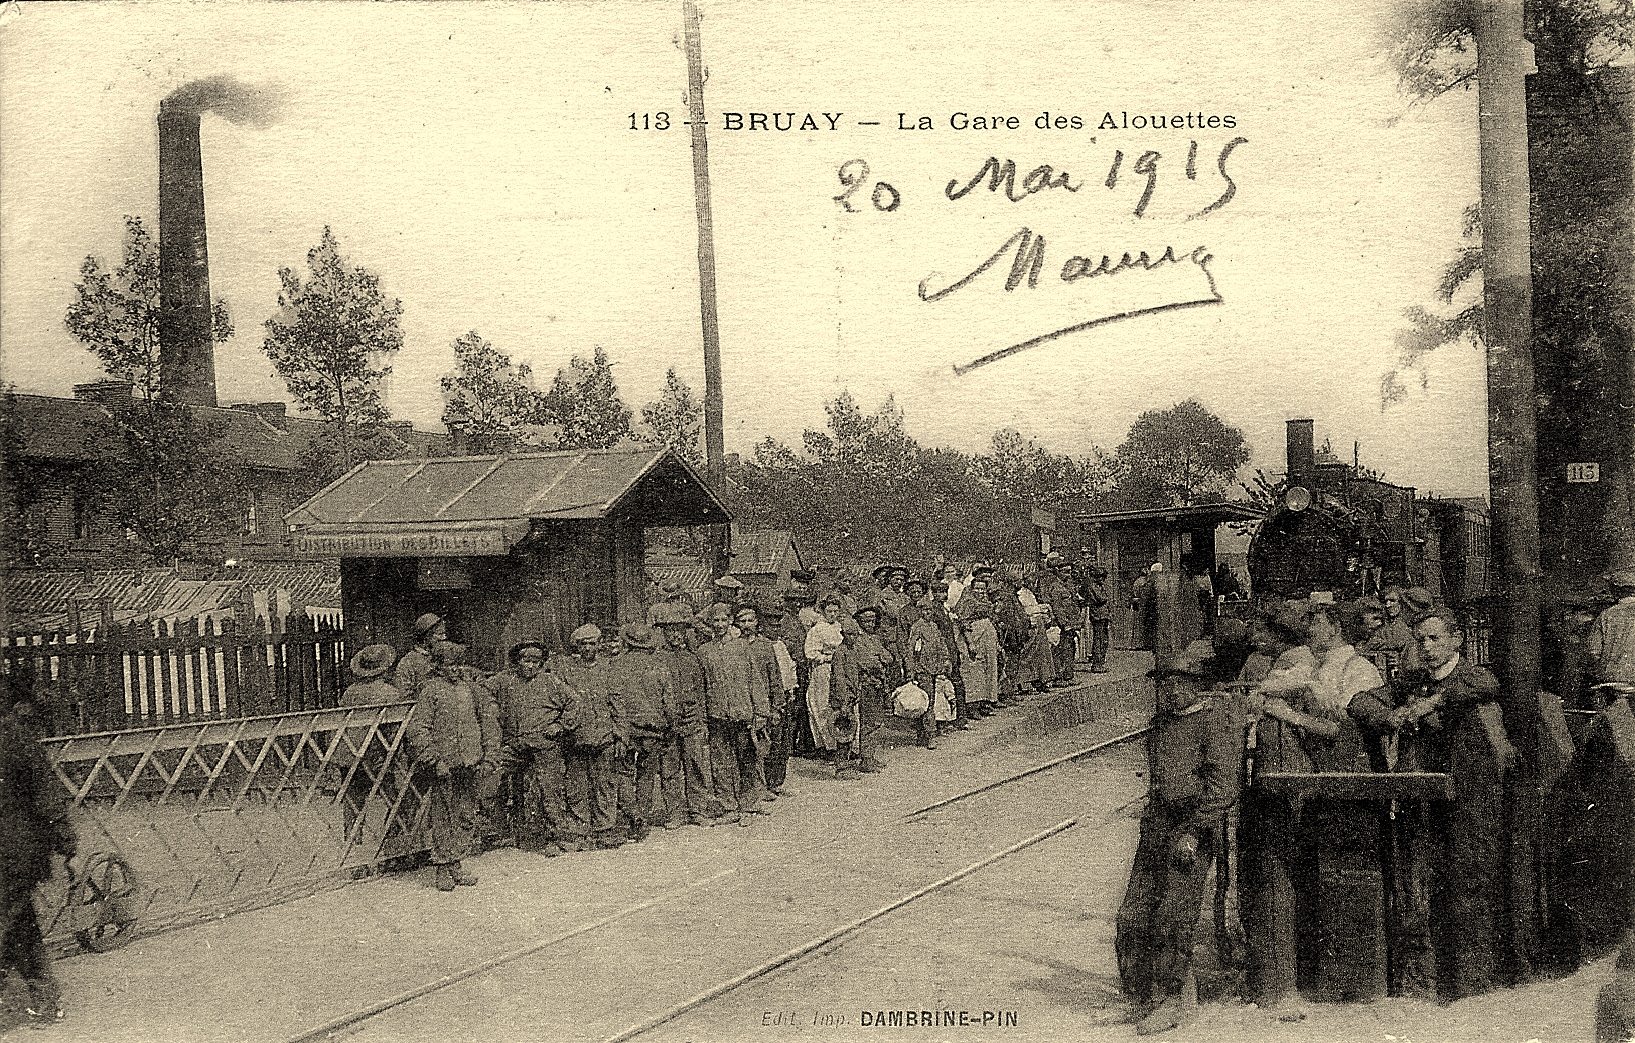 113 - BRUAY — La Gare des Alouettes
20 Mai 1915
DISTRIBUTION DES BILLETS
113
Edit. Imp. DAMBRINE-PIN